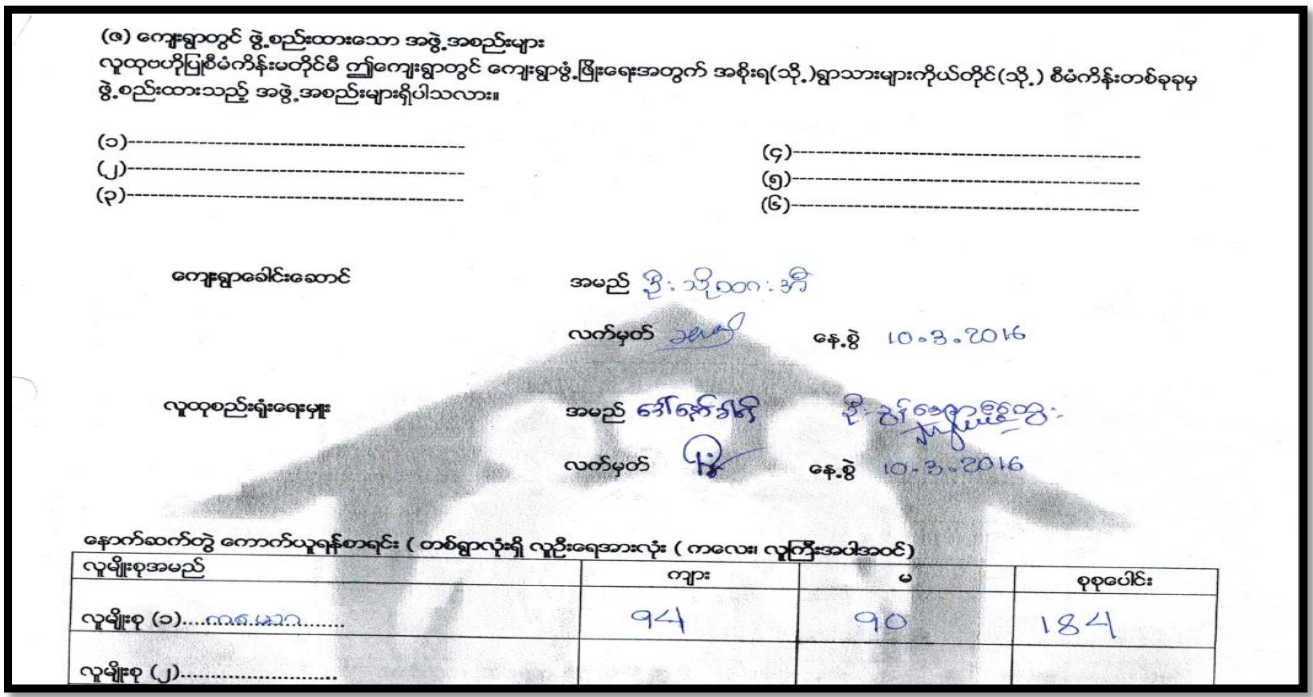 (ဇ) ကျေးရွာတွင် ဖွဲ့စည်းထားသော အဖွဲ့အစည်းများ
လူထုဗဟိုပြုစီမံကိန်းမတိုင်မီ ဤကျေးရွာတွင် ကျေးရွာဖွံ့ဖြိုးရေးအတွက် အစိုးရ(သို့)ရွာသားများကိုယ်တိုင်(သို့) စီမံကိန်းတစ်ခုခုမှ
ဖွဲ့စည်းထားသည့် အဖွဲ့အစည်းများရှိပါသလား။
(၁)---------------------------------------- (၄)----------------------------------------
(၂)---------------------------------------- (၅)----------------------------------------
(၃)---------------------------------------- (၆)----------------------------------------
ကျေးရွာခေါင်းဆောင် အမည် ဦး
လက်မှတ် နေ့စွဲ 10.3.2016
လူထုစည်းရုံးရေးမှူး အမည် ဒေါ်နော် ဦး
လက်မှတ် နေ့စွဲ 10.3.2016
နောက်ဆက်တွဲ ကောက်ယူရန်စာရင်း ( တစ်ရွာလုံးရှိ လူဦးရေအားလုံး ( ကလေး၊ လူကြီးအပါအဝင်)
လူမျိုးစုအမည် ကျား မ စုစုပေါင်း
လူမျိုးစု (၁).... 94 90 184
လူမျိုးစု (၂)..........................